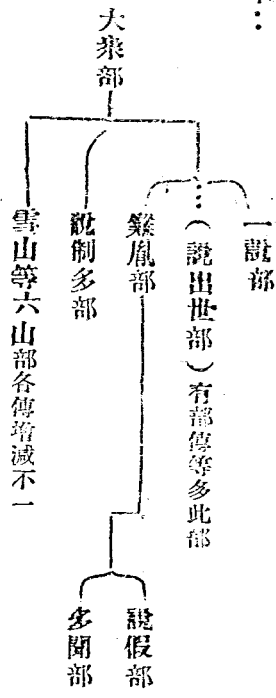 大衆部
一說部
（說出世部）有部傳等多此部
雞胤部
說假部
多聞部
說制多部
雪山等六山部各傳增減不一